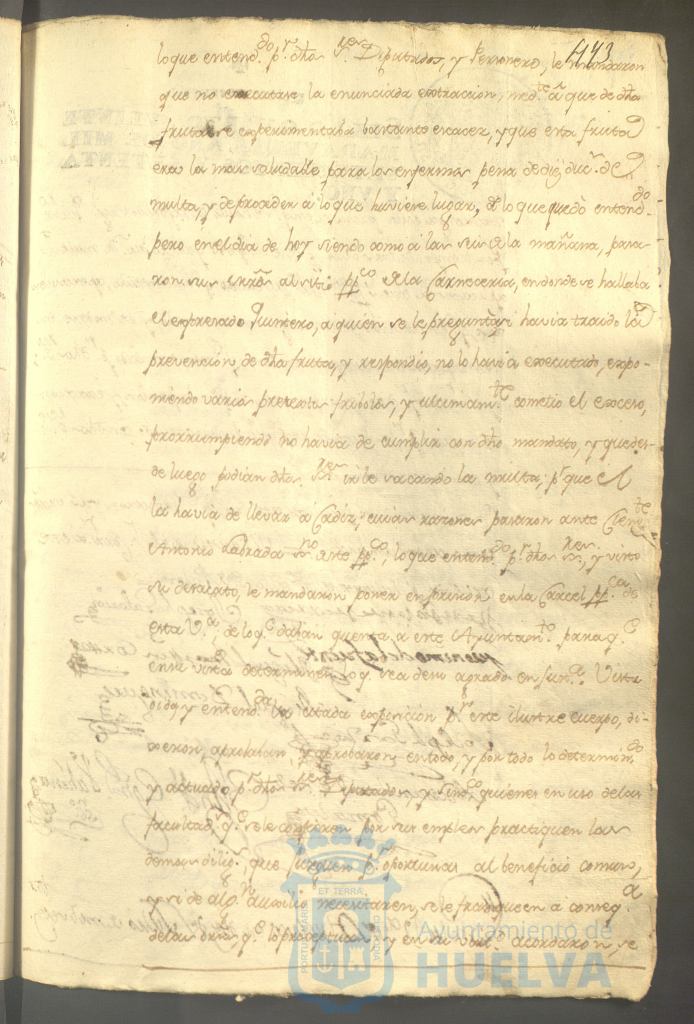 443
lo que entend.do p.r dhos S.res Diputados, y Personero, le mandaron
que no executase la enunciada extraccion, med.te a que de dha
fruta se experimentaba bastante escacez, y que esta fruta
era la mas saludable para los enfermos pena de diez duc.s de
multa, y de proceder a lo que huviere lugar, de lo que quedò entend.do
pero en el dia de hoy siendo como a las seis de la mañana, pasa-
ron sus mrds al sitio pp.co de la Carneceria, en donde se hallaba
el expresado Quintero, a quien se le preguntò si havia traido la
prevencion, de dha fruta, y respondio, no lo havia executado, expo-
niendo varios pretextos fribolos, y ultimam.te cometio el exceso,
prorrumpiendo no havia de cumplir con dho mandato, y que des-
de luego podian dhos S.res irle sacando la multa; p.r que el
la havia de llevar a Cadiz; cuias razones pasaron ante
Antonio Labrada ss.no ante pp.co; lo que entend.do p.r dhos S.res, y visto
su desacato, le mandaron poner en prision en la Carcel pp.ca de
esta V.a; de lo q.e daban quenta a este Ayuntam.to para q.e
en su vista determinen lo q. sea de su agrado en fun.n Vista
oida, y entend.da la citada exposicion p.r este ilustre cuerpo, di-
xeron, aprobaban, y aprobaron en todo, y por todo lo determin.do
y actuado p.r dhos S.res Diputados, y Sind.co quienes en uso de las
facultad.s q.e se le confieren por sus empleos practiquen las
demas dilig.s que juzguen p.r oportunas al beneficio comun,
y si de alg.n auxilio necesitaren, se le franqueen a conseq.a
de las ôrns q.e lo preceptuan y en su virt.d acordaron, se
PORTUS MARIS ET TERRAE CUSTODIA
Ayuntamiento de
HUELVA